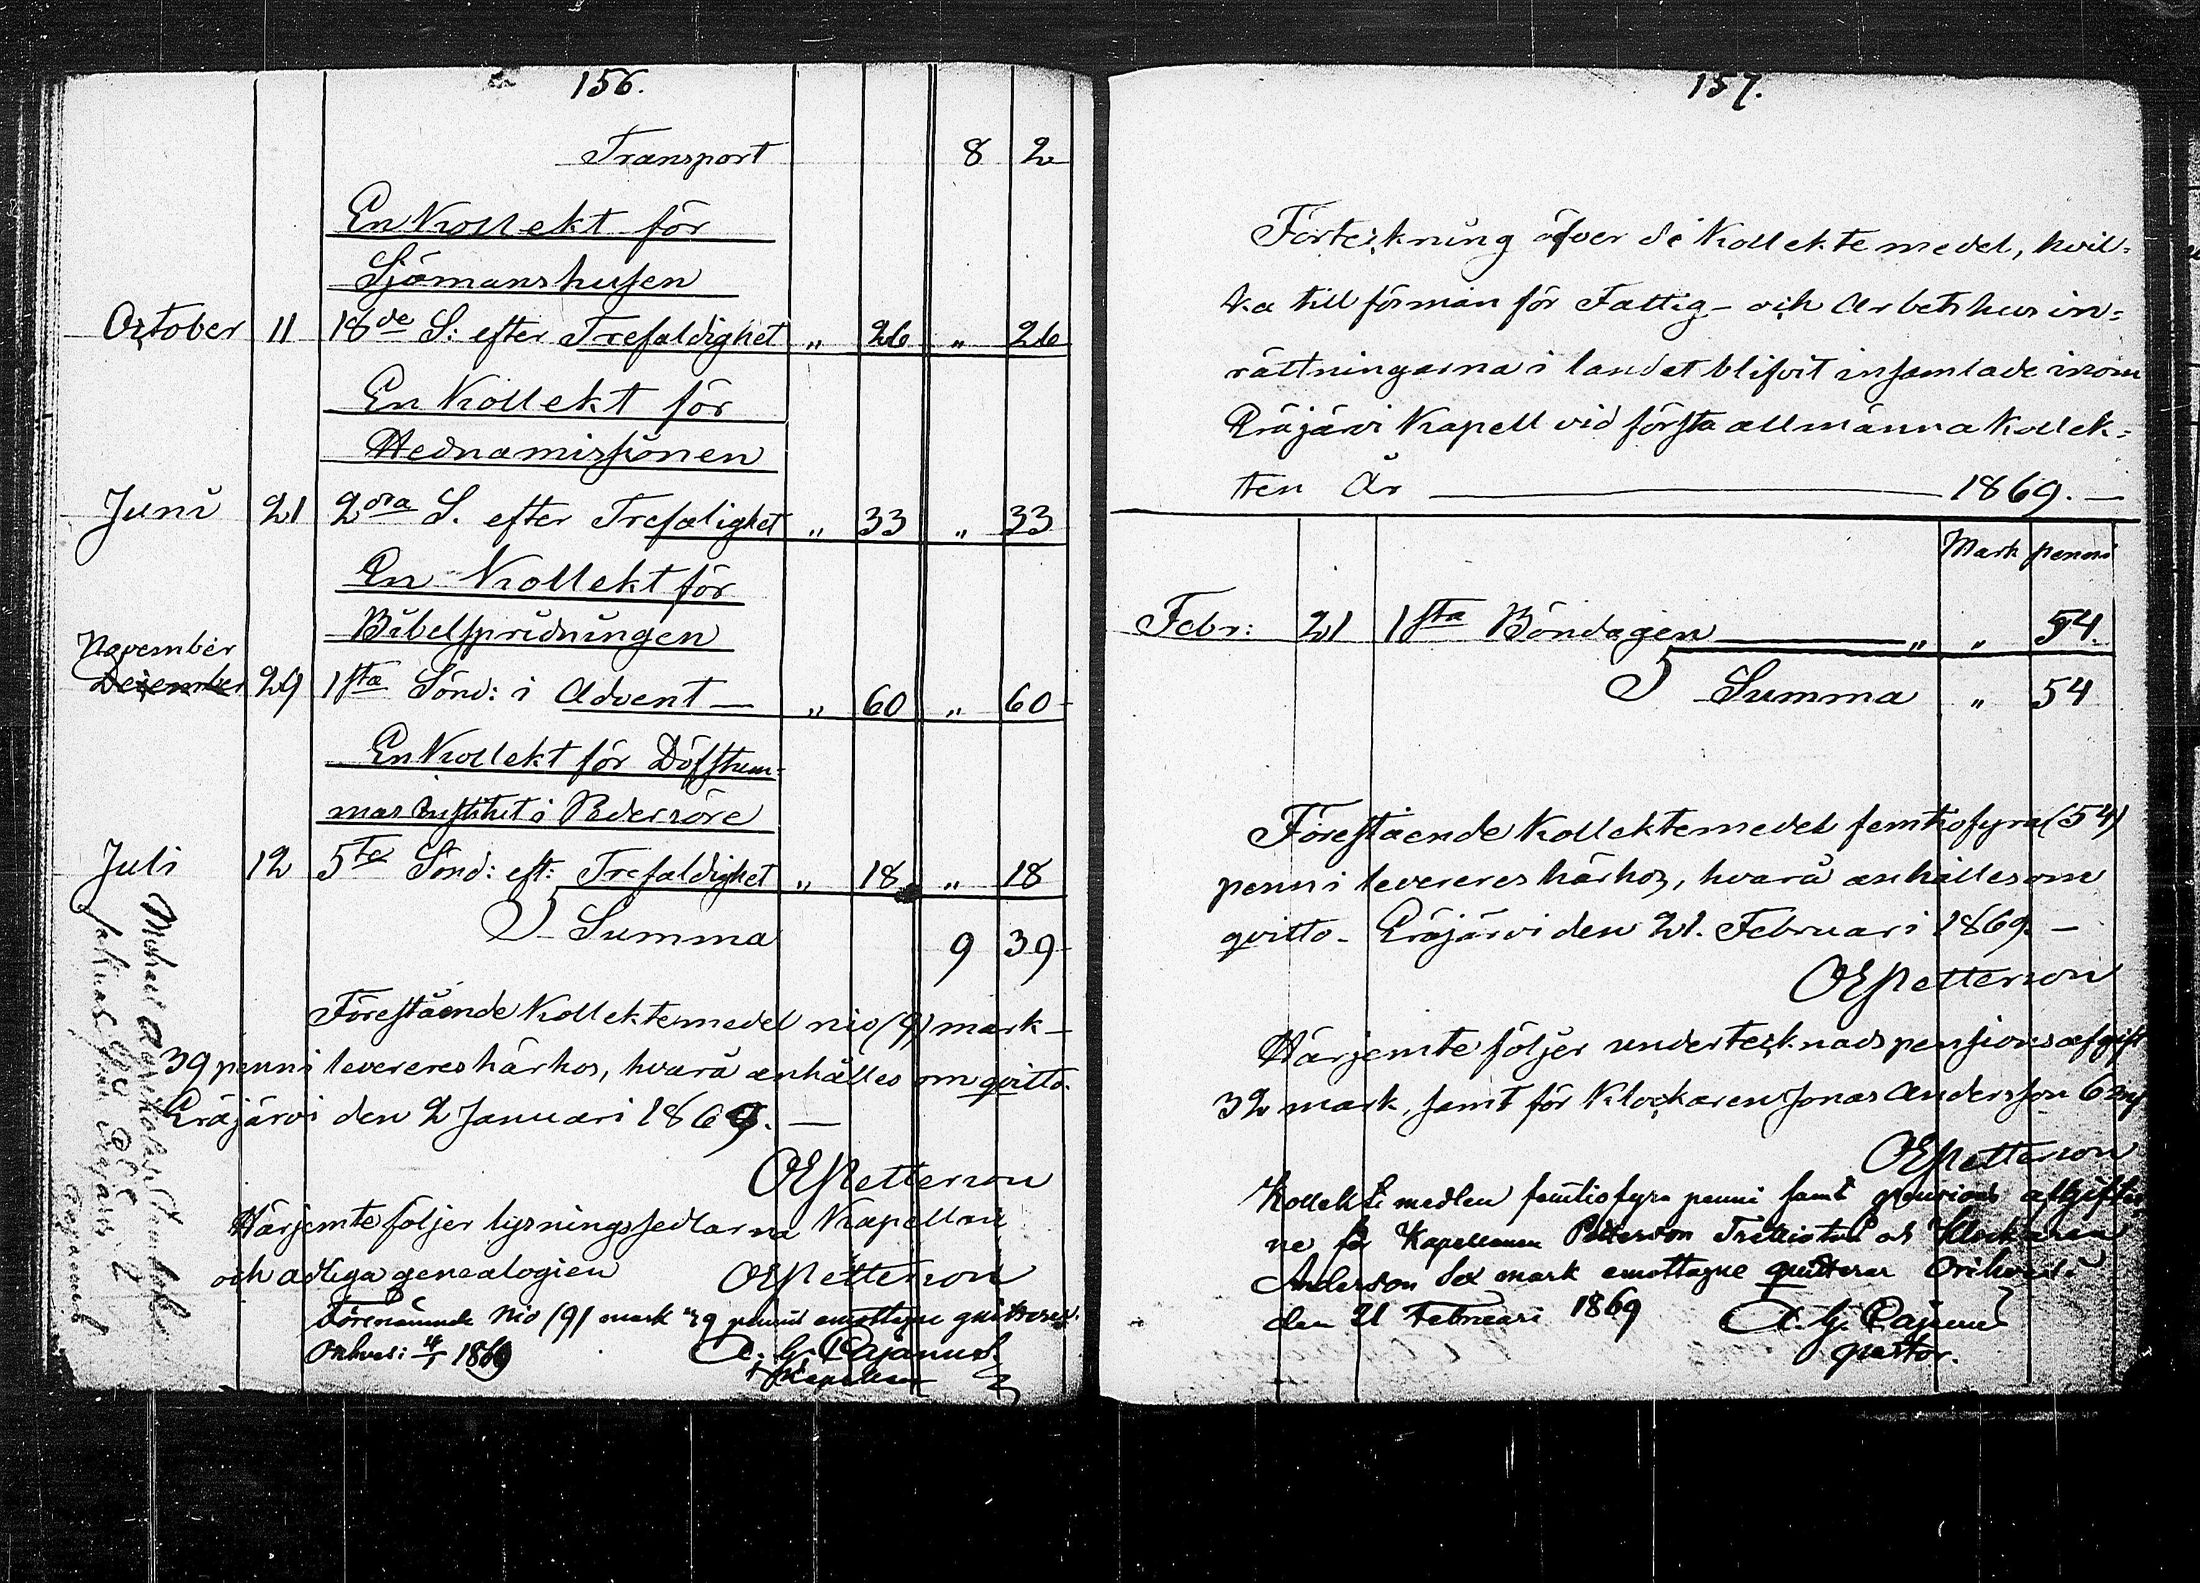 156.
Transport 8 2
En Kollekt för
Sjömanshusen
October 11 18de S: efter Trefaldighet " 26 " 26
En Kollekt för
Hednamissionen
Juni 21 2dra S. efter Trefalighet " 33 " 33
En Kollekt för
Bibelspridningen
November
December 29 1sta Sönd: i Advent — " 60 " 60
En Kollekt för Döfstum-
mas Institut i Pedersöre
Juli 12 5te Sönd: eft: Trefaldighet " 18 " 18
Summa 9 39
Förestående Kollektemedel nio (9) mark
39 penni levereres härhos, hvarå anhålles om qvitto.
Eräjärvi den 2 Januari 1869. —
OEPetterson
Härjemte följer lysningssedlarna Kapell
och adliga genealogien OEPetterson
Förenämnde Nio (9) mark 39 penni emottagne quitteras.
Orihvesi 1869 A. G. Cajanus
Michael
157.
Förteckning öfver de Kollektemedel, hvil-
ka till förmån för Fattig- och Arbetshusin-
rättningarna i landet blifvit insamlade inom
Eräjärvi Kapell vid första allmänna Kollek-
ten År — 1869. —
Mark penni
Febr: 21 1sta Böndagen — " " 54.
Summa " 54
Förestående Kollektemedel femtiofyra (54)
penni levereres härhos, hvarå anhålles om
qvitto. Eräjärvi den 21. Februari 1869. —
OEPetterson
Härjemte följer undertecknads pensionsafgift
32 mark, samt för Klockaren Jonas Andersson 6 mk
OEPetterson
Kollekte medlen femtiofyra penni samt pensions afgifter
ne för Kapellanen Petterson Trettiotvå och Klockaren
Anderson Sex mark emottagne quitterar Orihvesi
den 21 Februari 1869 A. G. Cajanus
pastor.